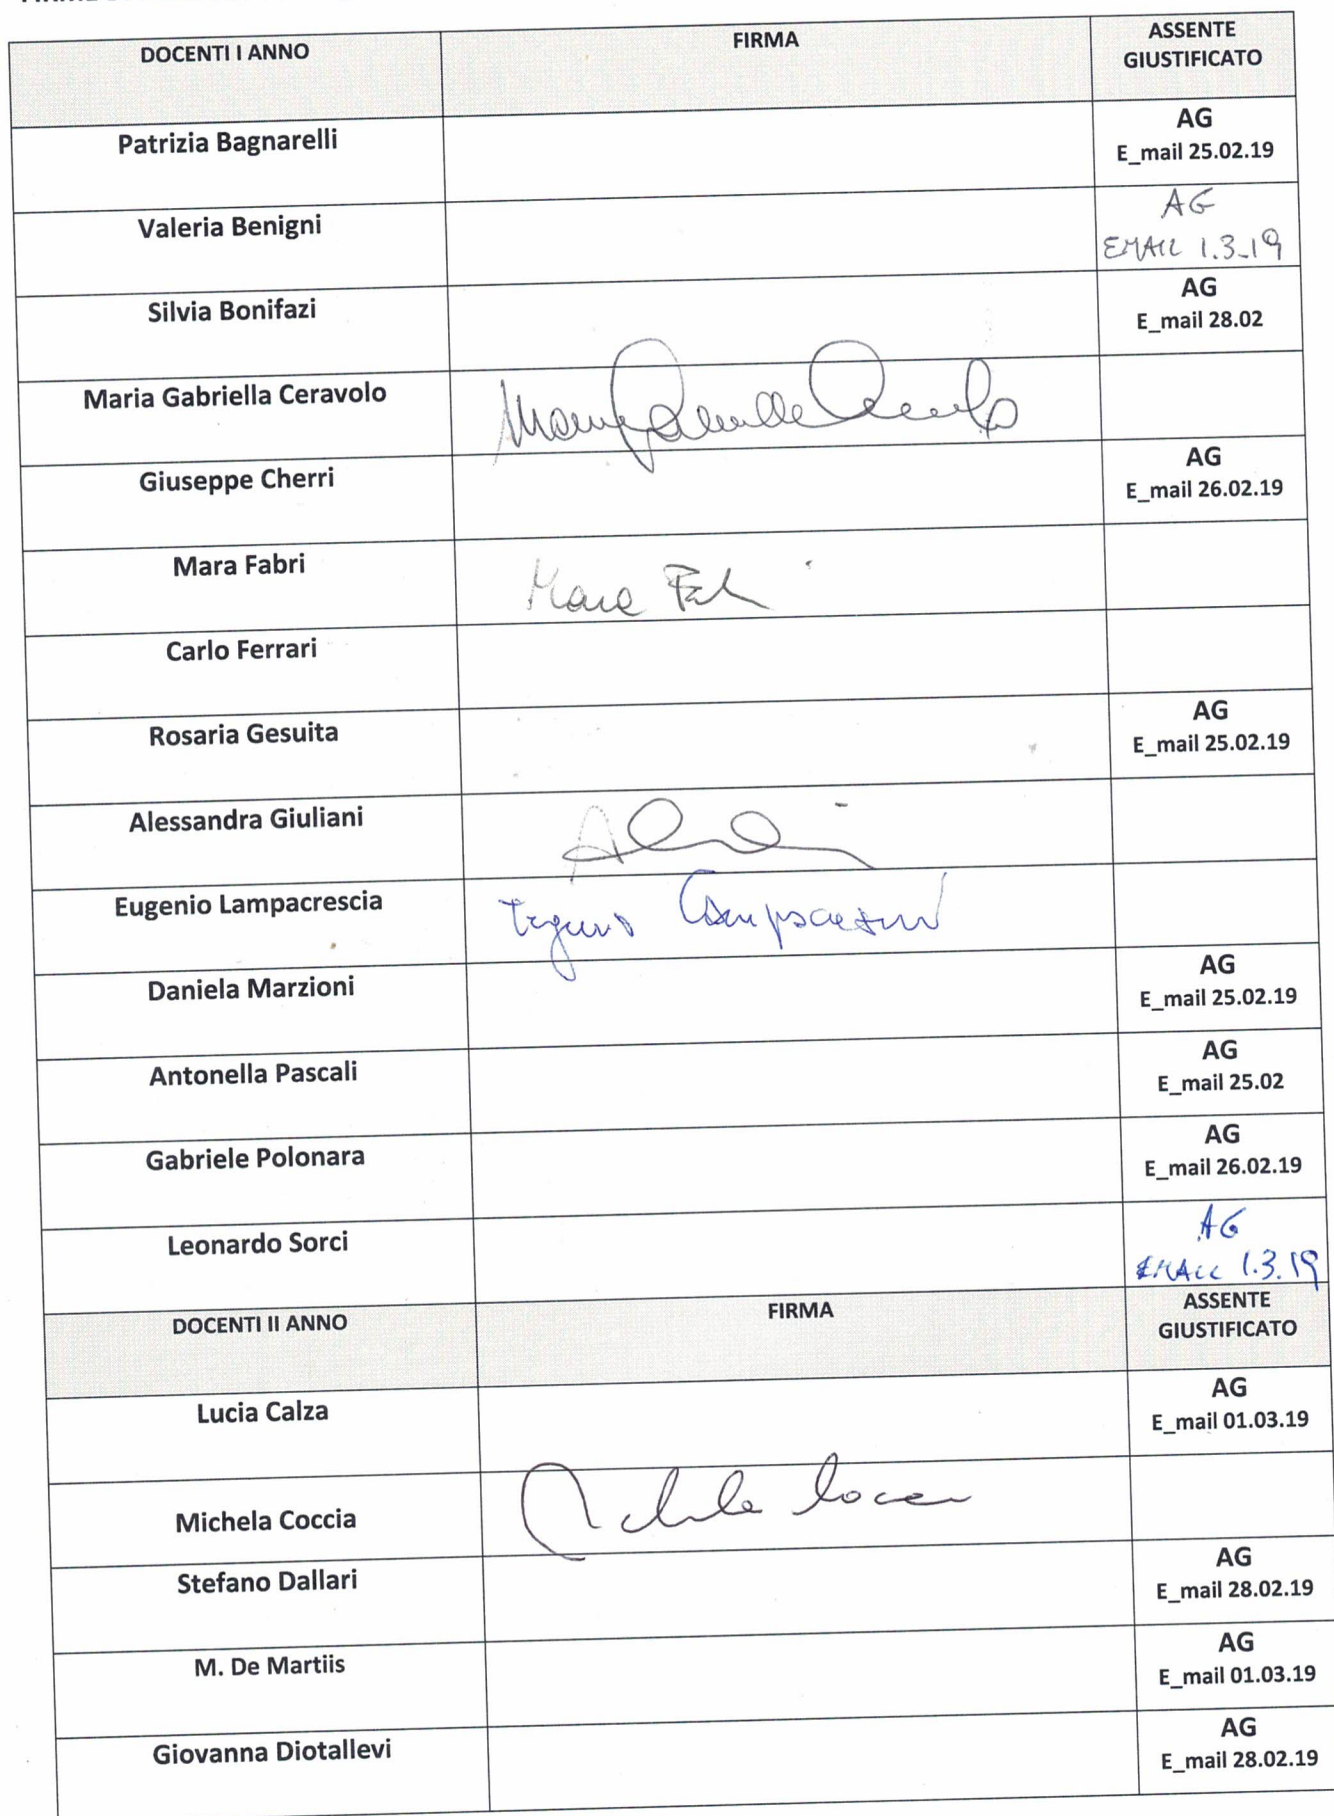 DOCENTI I ANNO FIRMA ASSENTE
GIUSTIFICATO
Patrizia Bagnarelli AG
E_mail 25.02.19
Valeria Benigni AG
EMAIL 1.3.19
Silvia Bonifazi AG
E_mail 28.02
Maria Gabriella Ceravolo
Giuseppe Cherri AG
E_mail 26.02.19
Mara Fabri Mara
Carlo Ferrari
Rosaria Gesuita AG
E_mail 25.02.19
Alessandra Giuliani
Eugenio Lampacrescia
Daniela Marzioni AG
E_mail 25.02.19
Antonella Pascali AG
E_mail 25.02
Gabriele Polonara AG
E_mail 26.02.19
Leonardo Sorci AG
EMAIL 1.3.19
DOCENTI II ANNO FIRMA ASSENTE
GIUSTIFICATO
Lucia Calza AG
E_mail 01.03.19
Michela Coccia
Stefano Dallari AG
E_mail 28.02.19
M. De Martiis AG
E_mail 01.03.19
Giovanna Diotallevi AG
E_mail 28.02.19